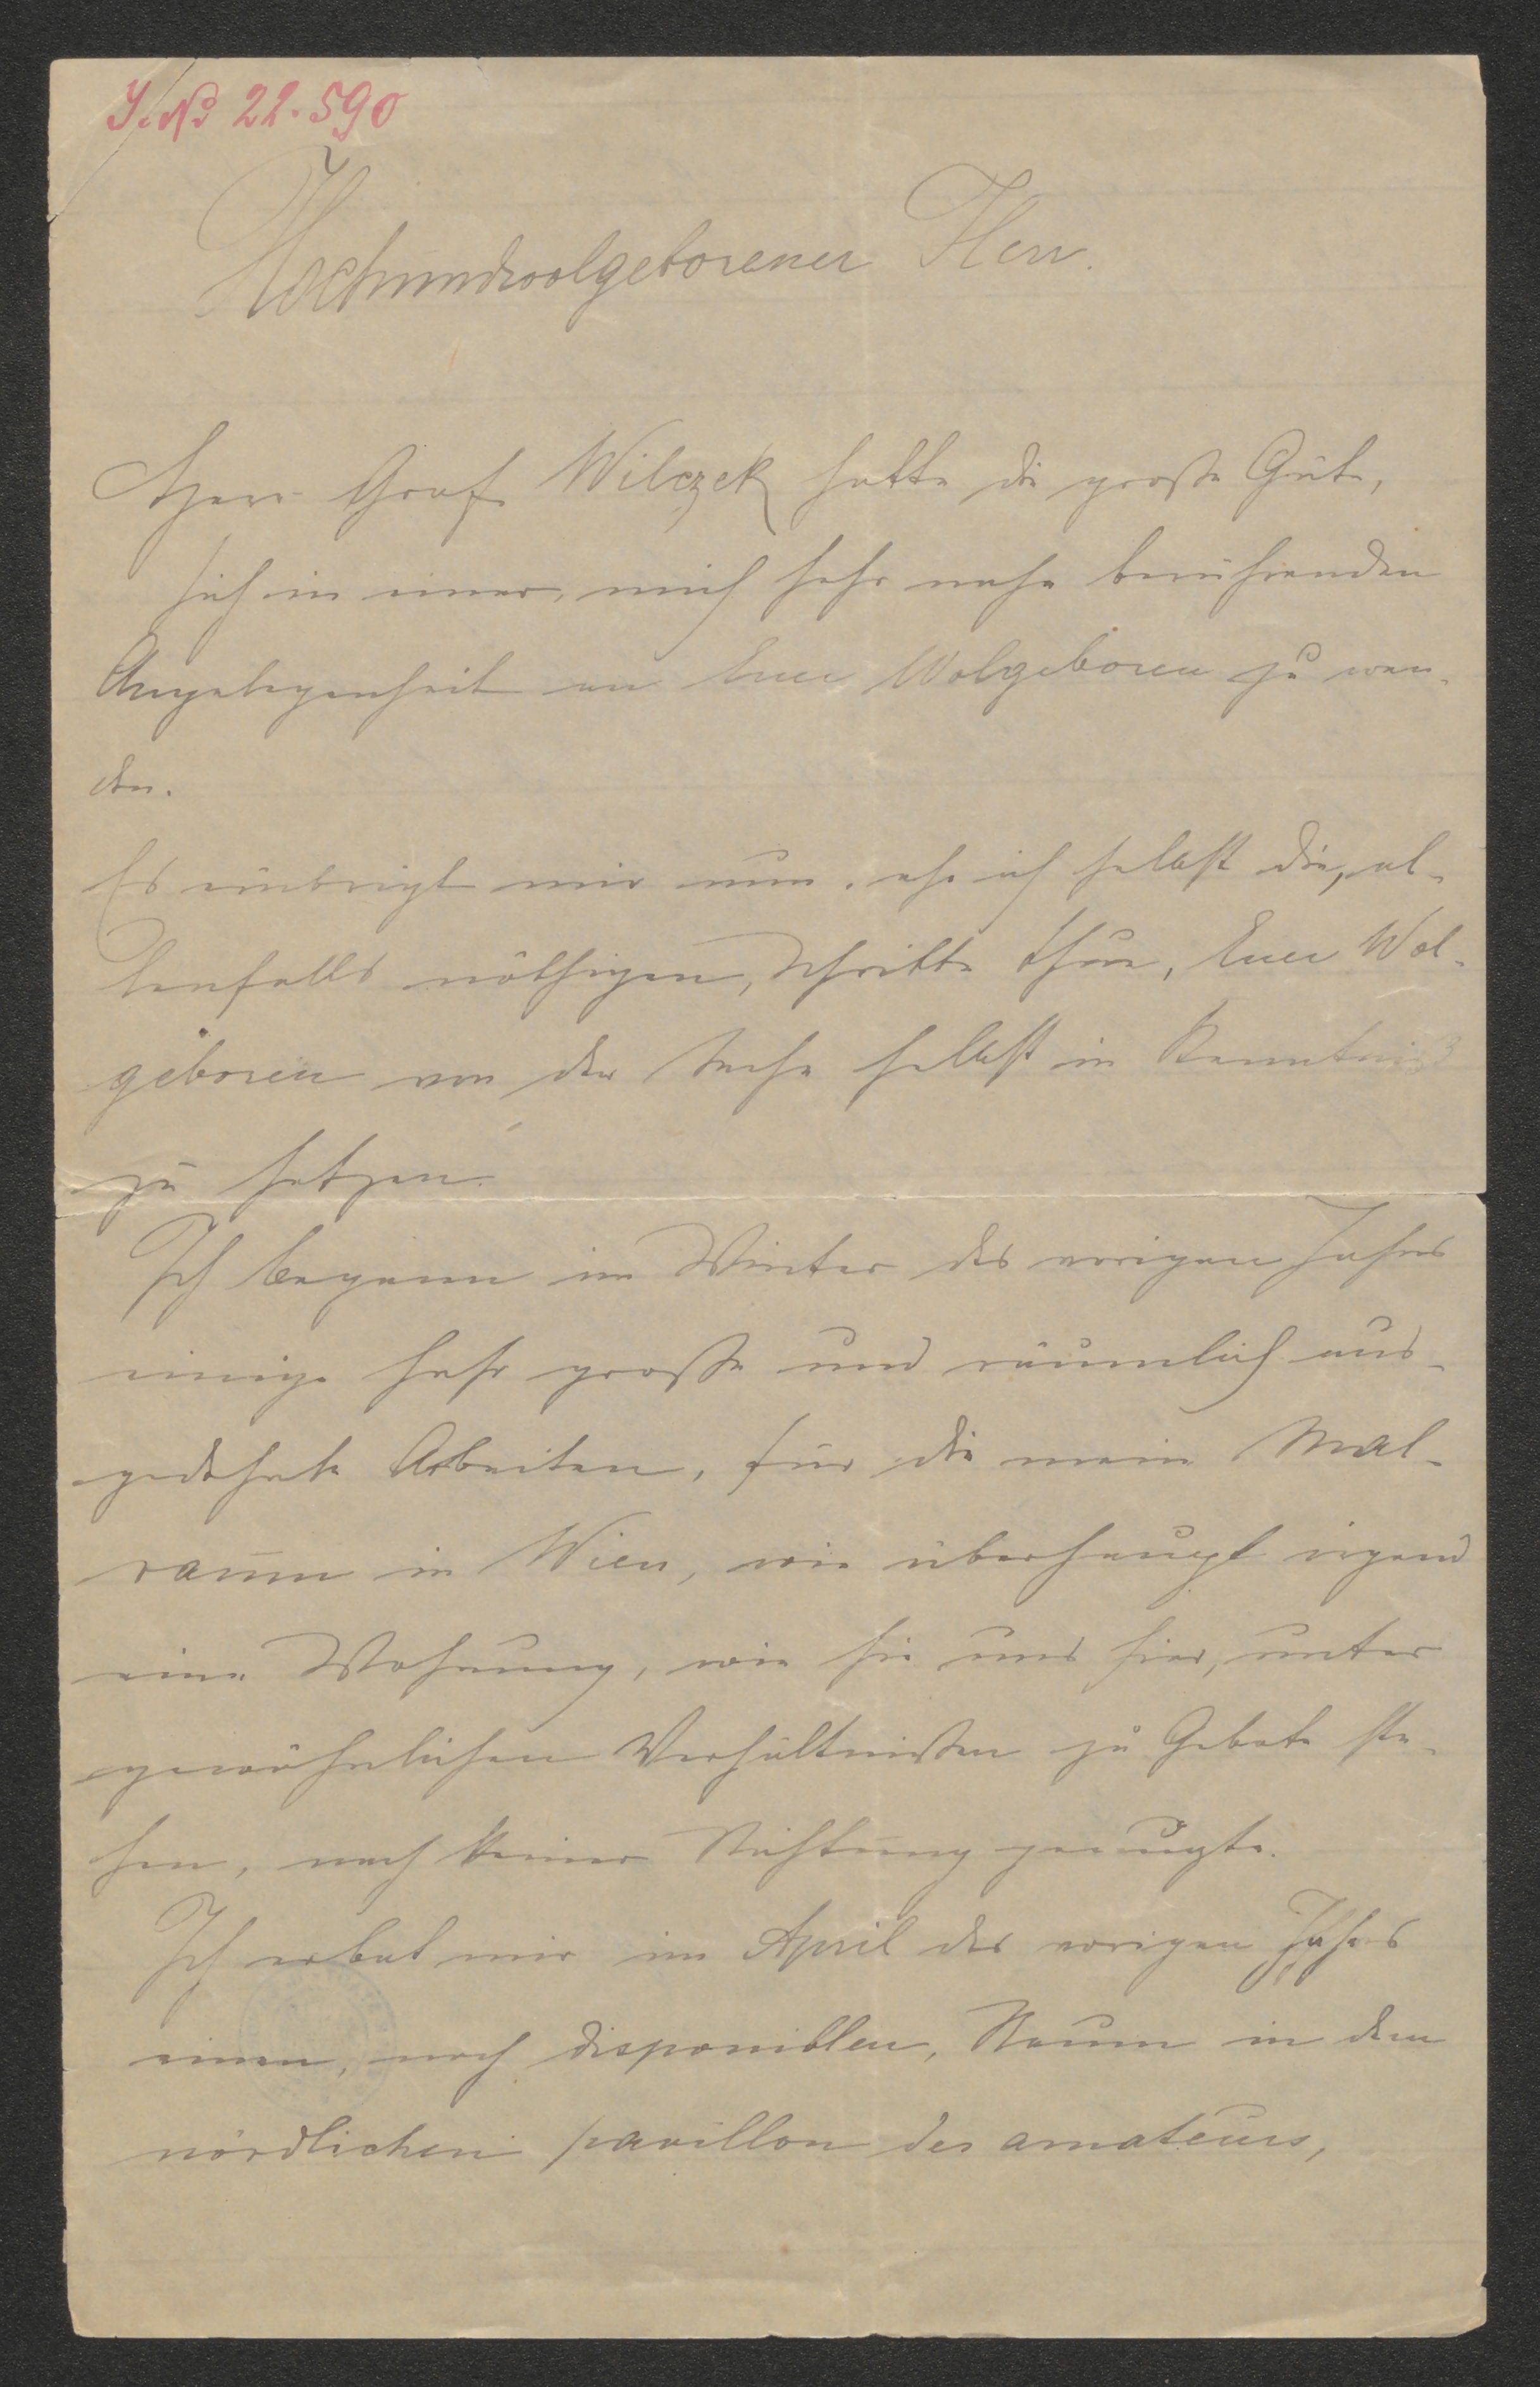 J. No 22.590
Hochundwolgeborener Herr.
Herr Graf Wilczek hatte die große Güte,
sich in einer, mich sehr nahe berührenden
Angelegenheit an Euer Wolgeboren zu wen-
den.
Es erübrigt mir nun, ehe ich selbst die, al-
lenfalls nöthigen, Schritte thue, Euer Wol-
geboren von der Sache selbst in Kenntniß
zu setzen.
Ich begann im Winter des vorigen Jahres
einige sehr große und räumlich aus-
gedehnte Arbeiten, für die mein Mal-
raum in Wien, wie überhaupt irgend
eine Wohnung, wie sie uns hier, unter
gewöhnlichen Verhältnißen zu Gebote ste-
hen, nach keiner Richtung genügte.
Ich erbat mir im April des vorigen Jahres
einen, noch disponiblen, Raum in dem
nördlichen pavillon des amateurs,